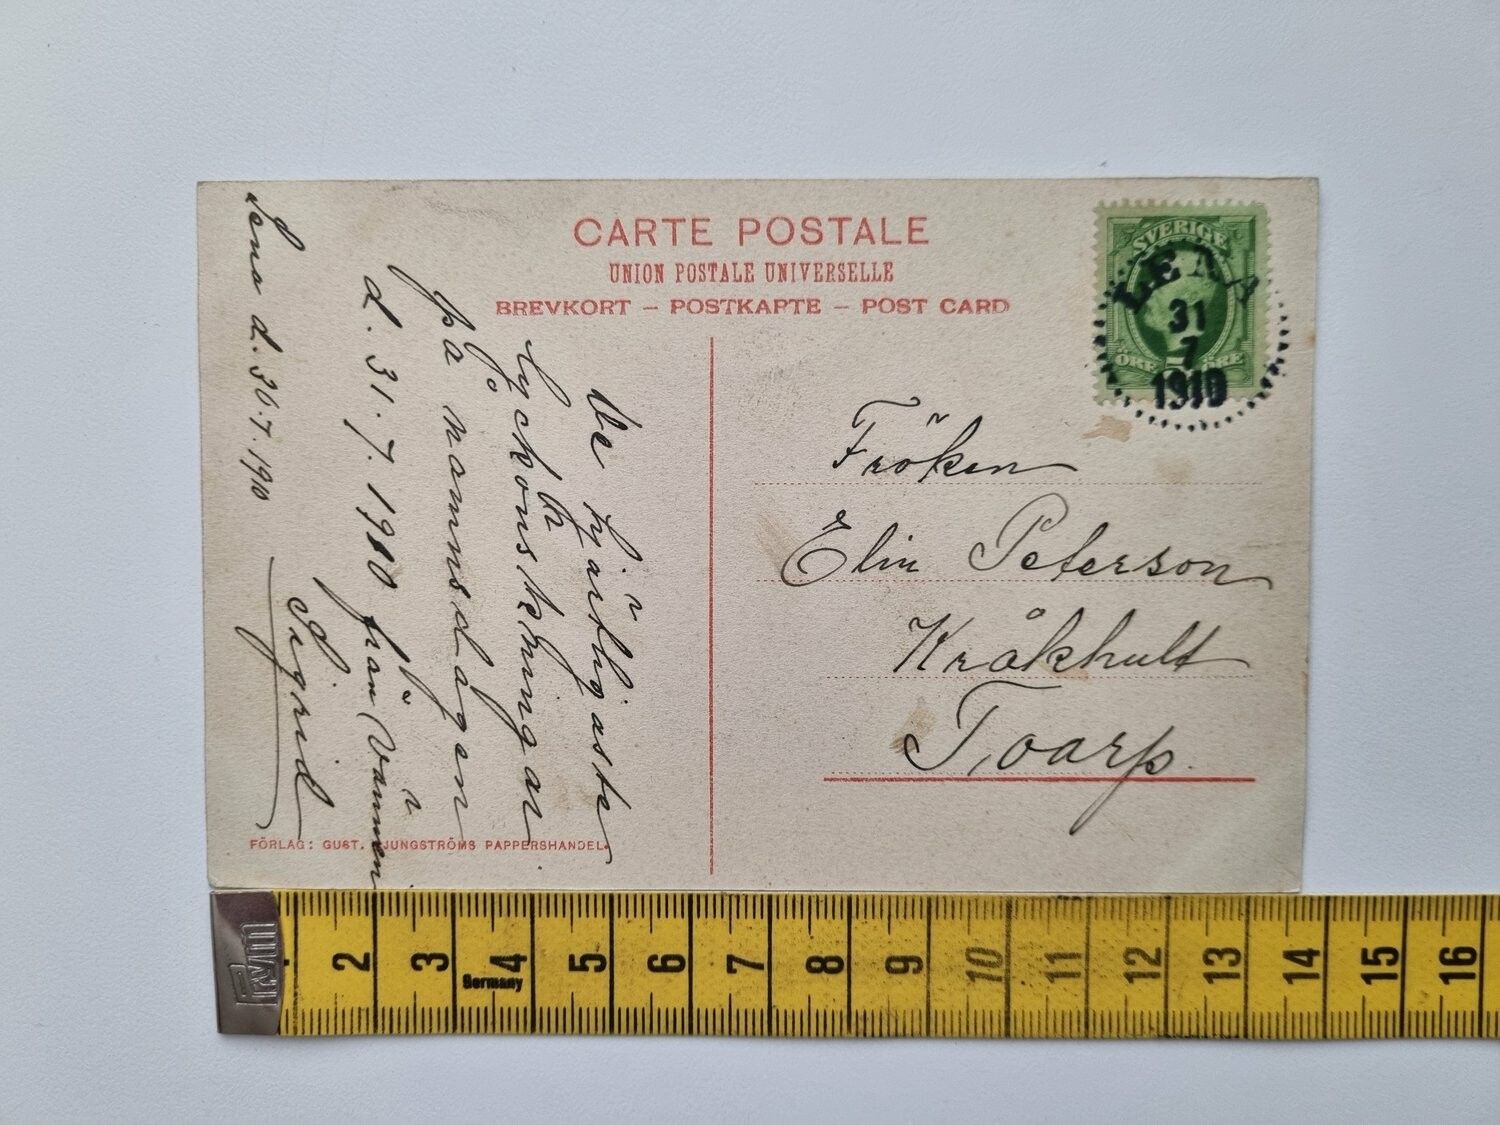 CARTE POSTALE
UNION POSTALE UNIVERSELLE
BREVKORT – POSTKARTE – POST CARD
SVERIGE
ÖRE ÖRE
LENA
31
7
1910
De hjärtligaste
lyckönskningar
på namnsdagen
d. 31.7.1910 från Vännen
Sigrid
Lena d. 30.7.1910
Fröken
Elin Peterson
Kråkhult
Toarp.
FÖRLAG: GUST. LJUNGSTRÖMS PAPPERSHANDEL.
Prym
2 3 4 5 6 7 8 9 10 11 12 13 14 15 16
Germany